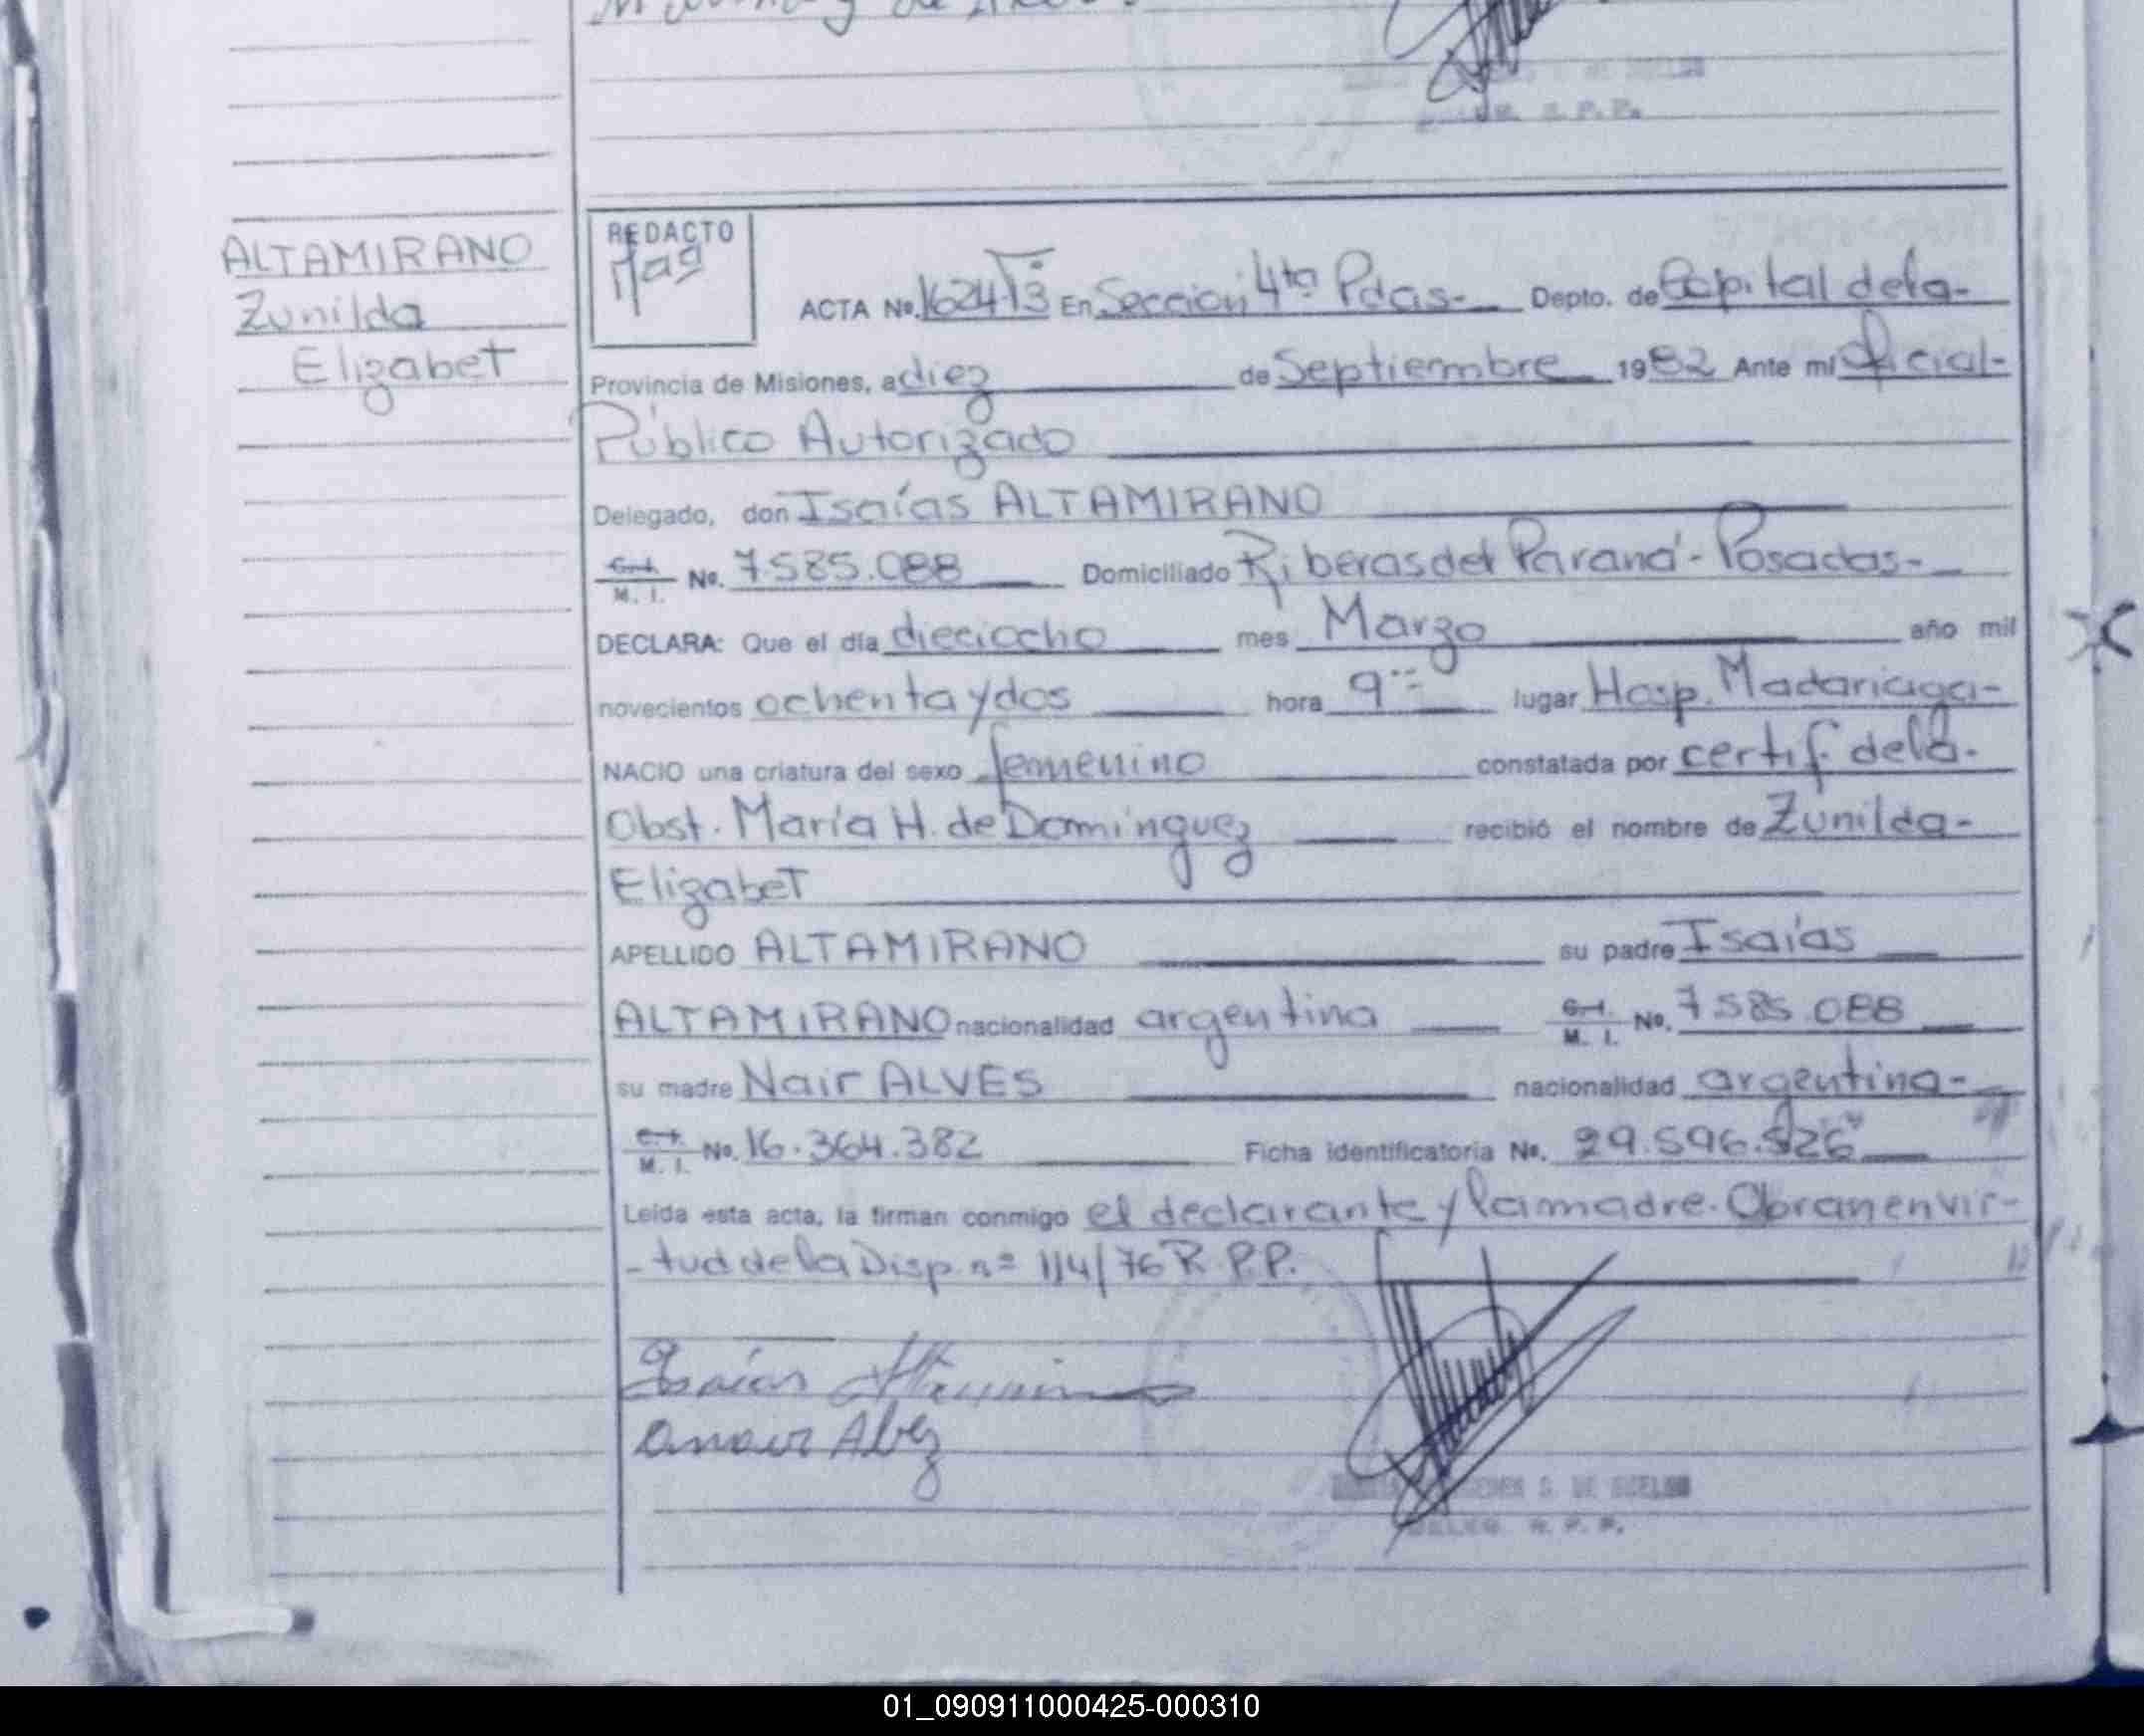 ALTAMIRANO
Zunilda
Elizabet
REDACTO
ACTA No. 1624 T3 En Sección 4ta Pdas- Depto. de Capital de la-
Provincia de Misiones, a diez de Septiembre 1982 Ante mí Oficial-
Público Autorizado
Delegado, don Isaías ALTAMIRANO
C. I. M. I. No. 7.585.088 Domiciliado Riberas del Paraná - Posadas-
DECLARA: Que el día dieciocho mes Marzo año mil
novecientos ochenta y dos hora 9 lugar Hosp. Madariaga-
NACIO una criatura del sexo femenino constatada por certif. de la-
Obst. María H. de Domínguez recibió el nombre de Zunilda-
Elizabet
APELLIDO ALTAMIRANO su padre Isaías
ALTAMIRANO nacionalidad argentina C. I. M. I. No. 7.585.088
su madre Nair ALVES nacionalidad argentina-
C. I. M. I. No. 16.364.382 Ficha identificatoria No. 29.596.526
Leída esta acta, la firman conmigo el declarante y la madre. Obran en vir-
-tud de la Disp. nº 114/76 R.P.P.
Isaías
Alvez
S. DE
R. P. P.
01_090911000425-000310